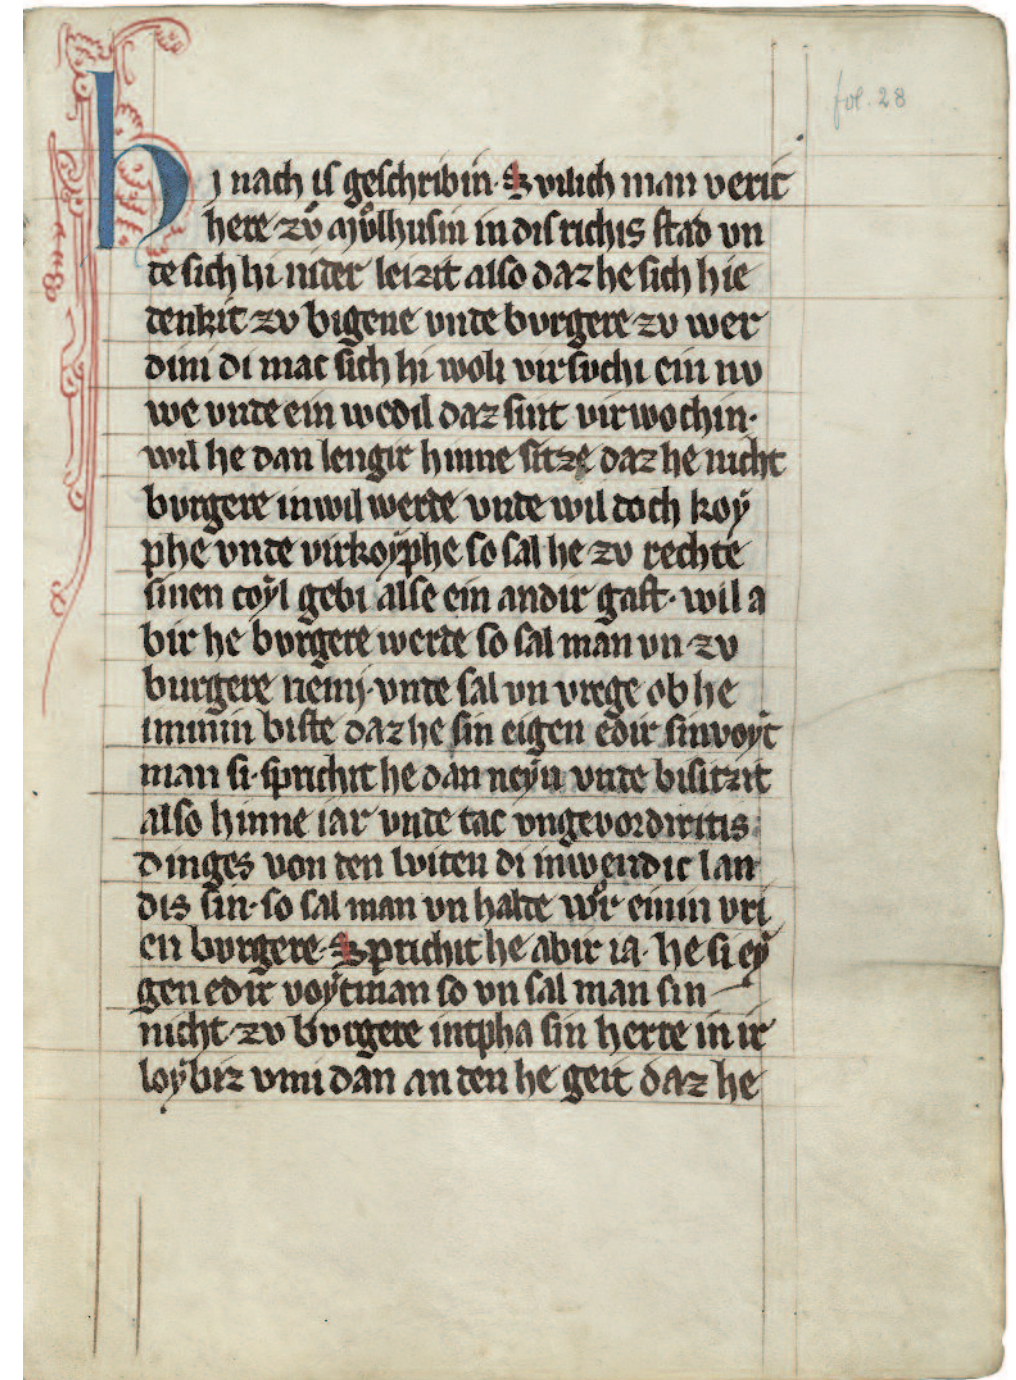 fol. 28
Hj nach is geschribin. Swilich man verit
here zů Mv̊lhusin in dis richis stad vn
te sich hi nider leizit also daz he sich hie
tenkit zv bigene vnte bvrgere zv wer
dini di mac sich hi woli virsvchi ein nv
we vnte ein wedil daz sint vir wochin.
wil he dan lengir hinne sitze daz he nicht
bvrgere inwil werde vnte wil doch koÿ
phe vnte virkoÿphe so sal he zv rechte
sinen toÿl gebi alse ein andir gast. wil a
bir he bvrgere werte so sal man vn zv
burgere nemi. vnte sal vn vrege ob he
immin biste daz he sin eigen edir sin voÿt
man si. sprichit he dan neÿn vnte bisitzit
also hinne iar vnte tac vngevordiritis
dinges von ten lviten di inwendic lan
dis sin. so sal man vn halte vvͦr einin vri
en bvrgere. Sprichit he abir ia. he si eÿ
gen edir voÿtman so vn sal man sin
nicht zv bvrgere intpha sin herre in ir
loÿbiz vmi dan an ten he geit daz he